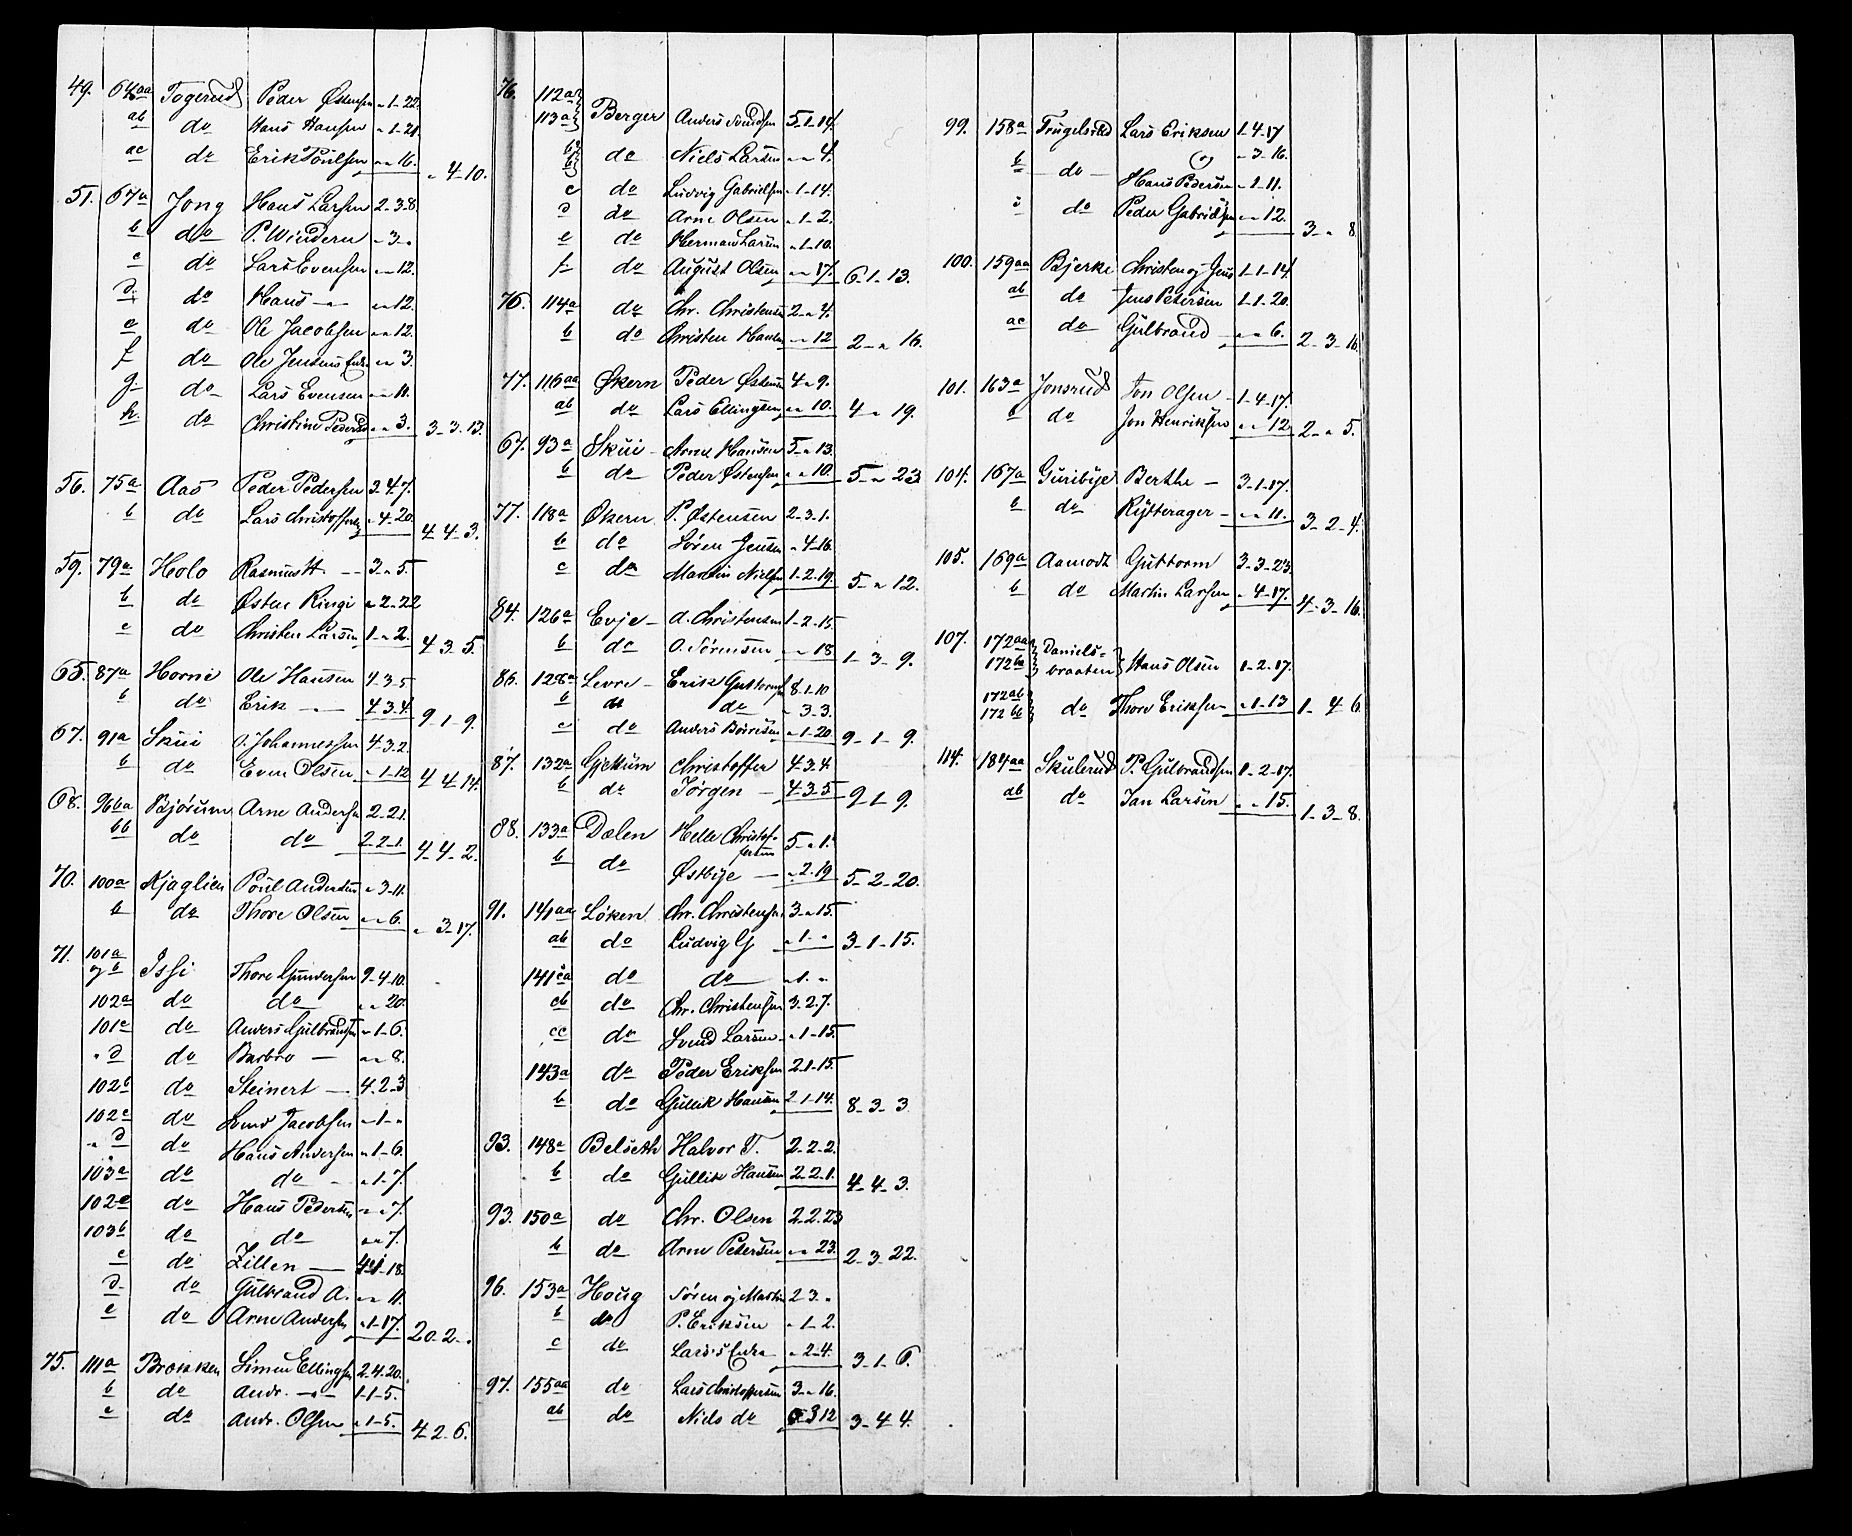 49. 64aa Togerud Peder Østensen „-1-22.
ab do Hans Hansen „-1-21.
ac do Erik Poulsen „-„-16. „-4-10.
51. 67a Jong Hans Larsen 2-3-8.
b do P. Windern „-3-„
c do Lars Evensen „-„-12.
d. do Hans -„- „-„-12.
e do Ole Jacobsen „-„-12.
f do Ole Jensens Enke „-„-3.
g do Lars Evensen „-„-11.
h. do Christine Pedersd „-„-3. 3-3-13.
56. 75a Aas Peder Pedersen 3-4-7.
b do Lars Christoffersen „-4-20. 4-4-3.
59. 79a Holo Rasmus H — 3-„-5.
b do Østen Ringi „-2-22
c do Christen Larsen 1-„-2. 4-3-5.
65. 87a Horni Ole Hansen 4-3-5
b do Erik -„- 4-3-4. 9-1-9.
67. 91a Skui O. Johannessen 4-3-2.
b do Even Olsen „-1-12 4-4-14.
68. 96ba Bjørum Arne Andersen 2-2-1.
bb do do 2-2-1. 4-4-2.
70. 100a Kjaglien Poul Andersen „-3-11.
b do Thore Olsen „-„-6. „-3-17.
71. 101a
og b Issi Thore Gundersen 9-4-10.
102a do do „-„-20.
101c do Anders Gulbrandsen „-1-6.
„ d do Barbro — „-„-8.
102b do Steinert — 4-2-3
102c do Svend Jacobsen „-1-„
„ d do Hans Andersen „-1-6.
103a do do „-1-7
102e do Hans Pedersen „-„-7.
103b do do „-„-7.
c do Zillen — 4-1-18.
d do Gulbrand A. „-„-11.
e do Arne Andersen „-1-17. 20-2-„
75. 111a Brækken Simen Ellingsen 2-4-20.
b do Andr. -„- 1-1-5.
c do Andr. Olsen „-1-5. 4-2-6.
76. 112a
113a Berger Anders Svendsen 5-1-14.
b do Niels Larsen „-„-4.
c do Ludvig Gabrielsen „-1-14.
d do Arne Olsen „-1-2.
e do Herman Larsen „-1-10.
f do August Olsen „-„-17. 6-1-13.
76. 114a do Chr. Christensen 2-„-4.
b do Christen Hansen „-„-12 2-„-16.
77. 116aa Økern Peder Østensen 4-„-9.
ab do Lars Ellingsen „-„-10. 4-„-19.
67. 93a Skui Arne Hansen 5-„-13.
b do Peder Østensen „-„-10. 5-„-23
77. 118a Økern P. Østensen 2-3-1.
b do Søren Jensen „-4-16.
c do Martin Nielsen 1-2-19. 5-„-12.
84. 126a Evje A. Christensen 1-2-15
b do O. Sørensen „-„-18 1-3-9.
86. 128a Levre Erik Guttormsen 8-1-10
b do do „-3-3.
c do Anders Børresen „-1-20. 9-1-9.
87. 132a Gjettum Christoffer 4-3-4
b do Jørgen — 4-3-5 9-1-9.
88. 133a Dælen Helle Christof-
fersen 5-„-1.
b do Østbye — „-2-19 5-2-20.
91. 141aa Løken Chr. Christensen 3-„-15.
ab do Ludvig G „-1-„ 3-1-15.
141ca do do „-1-„
cb do Chr. Christensen 3-2-7.
cc do Svend Larsen „-1-15.
143a do Peder Eriksen 2-1-15.
b do Gullik Hansen 2-1-14. 8-3-3.
93. 148a Belseth Halvor T. 2-2-2.
b do Gullik Hansen 2-2-1. 4-4-3.
93. 150a do Chr. Olsen 2-2-23
b do Arne Petersen „-„-23. 2-3-22.
96. 153a Houg Søren og Martin 2-3-„
b do P. Eriksen „-1-2.
c do Lars's Enke „-2-4. 3-1-6.
97. 155aa do Lars Christoffersen 3-„-16.
ab do Niels do „-3-12 3-4-4.
99. 158a Trugelsrud Lars Eriksen 1-4-17
„-3-16.
b do — Hans Pedersen „-1-11.
c do Peder Gabrielsen „-„-12. 3-„-8.
100. 159aa Bjerke Christen og Jens 1-1-14.
ab do Jens Petersen 1-1-20.
ac do Gulbrand „-„-6. 2-3-16.
101. 163a Jonsrud Jon Olsen 1-4-17.
b do Jon Henriksen „-„-12 2-„-5.
104. 167a Guribye Berthe — 3-1-17.
b do Rytterager „-„-11. 3-2-4.
105. 169a Aamodt Guttorm 3-3-23.
b do Martin Larsen „-4-17. 4-3-16.
107. 172aa Daniels-
172ba braaten Hans Olsen 1-2-17.
172ab
172bb do Thore Eriksen „-1-13 1-4-6.
114. 184aa Skulerud P. Gulbrandsen 1-2-17.
ab do Jan Larsen „-„-15. 1-3-8.